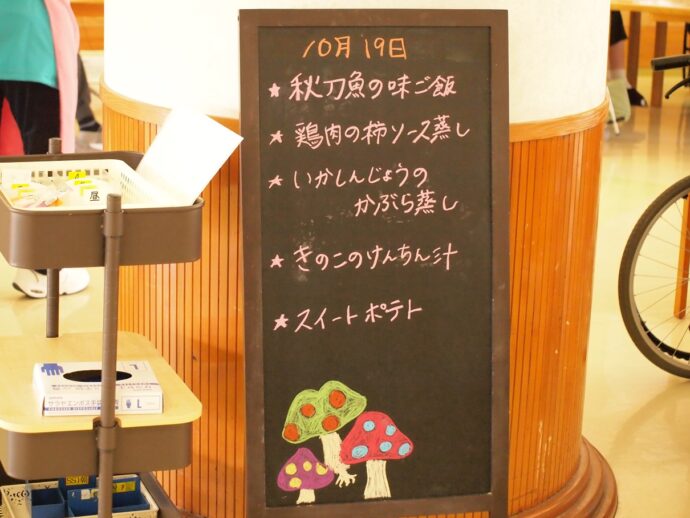 10月19日
★ 秋刀魚の味ご飯
★ 鶏肉の柿ソース蒸し
★ いかしんじょうの
かぶら蒸し
★ きのこのけんちん汁
★ スイートポテト
昼
サラヤエンボス手袋
L